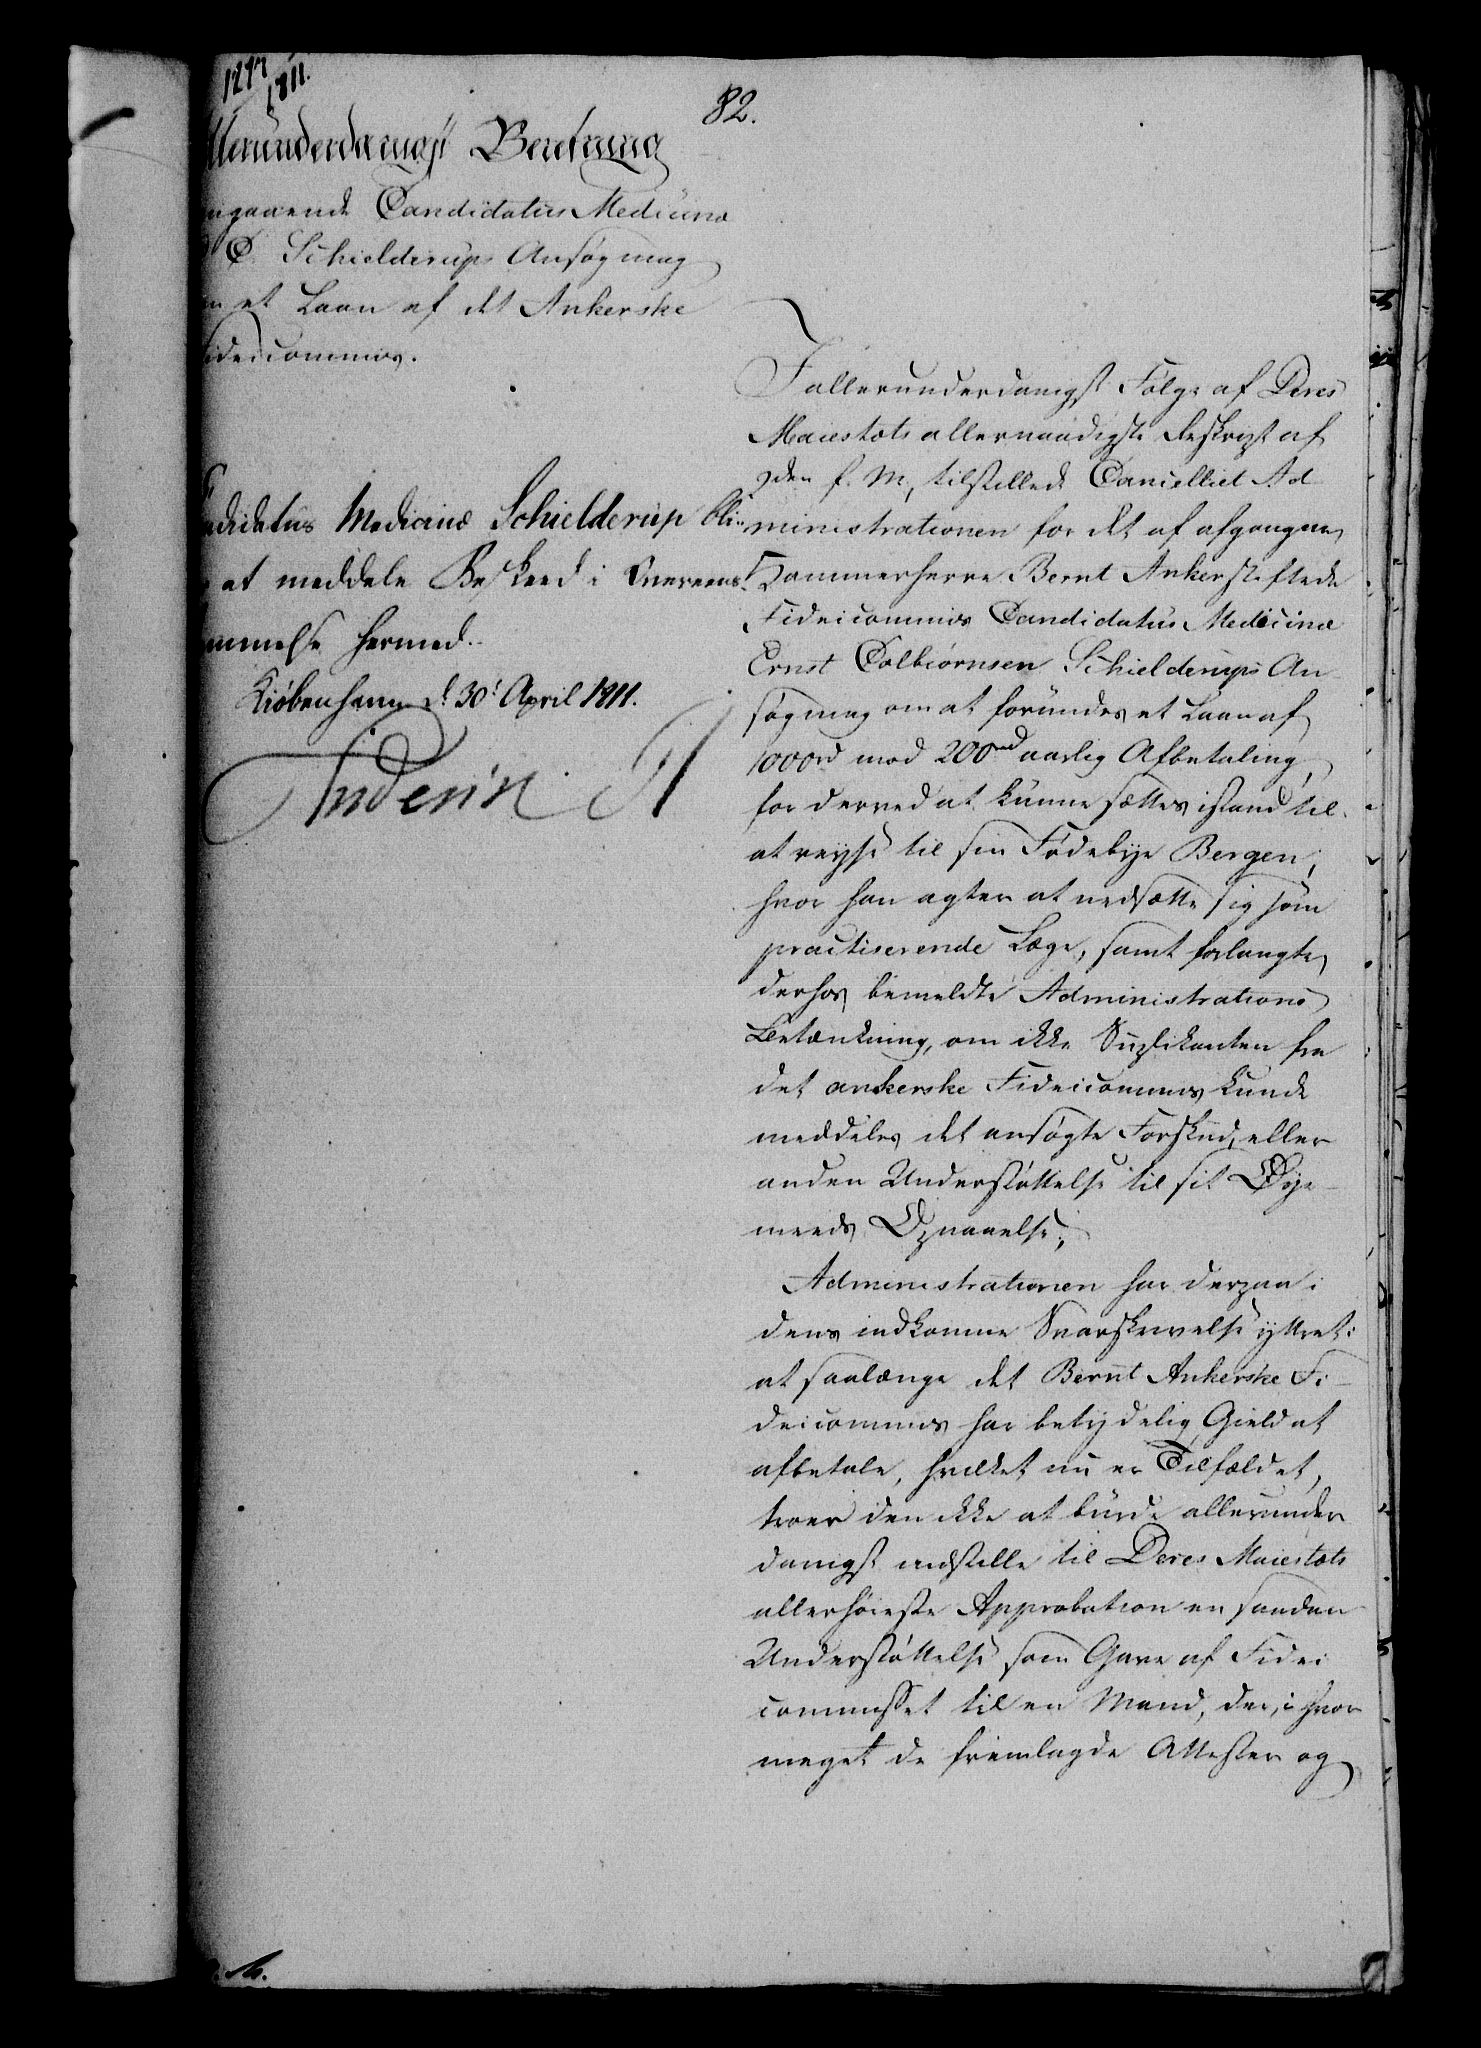 1277
1811.
82.
llerunderdanigst Beretning
ngaaende Candidatus Medicinæ
C. Schielderups Ansøgning
et Laan af det Ankerske
ideicommis.
ndidatus Medicinæ Schielderup bli-
at meddele Beskeed i Overeens-
mmelse hermed.
Kiøbenhavn d. 30t April 1811.
Frederik R
I allerunderdanigst Følge af Deres
Maiestæts allernaadigste Reskript af
den f. M, tilstillede Cancelliet Ad
ministrationen for det af afgangne
Kammerherre Bernt Anker stiftede
Fideicommis Candidatus Medicinæ
Ernst Colbiørnsen Schielderups An
søgning om at forundes et Laan af
1000rd mod 200rd aarlig Afbetaling,
for derved at kunne sættes istand til
at reyse til sin Fødebye Bergen,
hvor han agter at nedsætte sig som
practiserende Læge, samt forlangte
derhos bemeldte Administrations
Betænkning, om ikke Supplikanten fra
det ankerske Fideicommis kunde
meddeles det ansøgte Forskud, eller
anden Understøttelse til sit Øye
meeds Opnaaelse,
Administrationen har derpaa i
dens indkomne Svarskrivelse yttret:
at saalænge det Bernt Ankerske Fi
deicommis har betydelig Gield at
afbetale, hvilket nu er Tilfældet,
troer den ikke at burde allerunder
danigst indstille til Deres Maiestæts
allerhøieste Approbation en saadan
Understøttelse som Gave af Fidei
commisset til en Mand, der, i hvor
meget de fremlagde Attester og